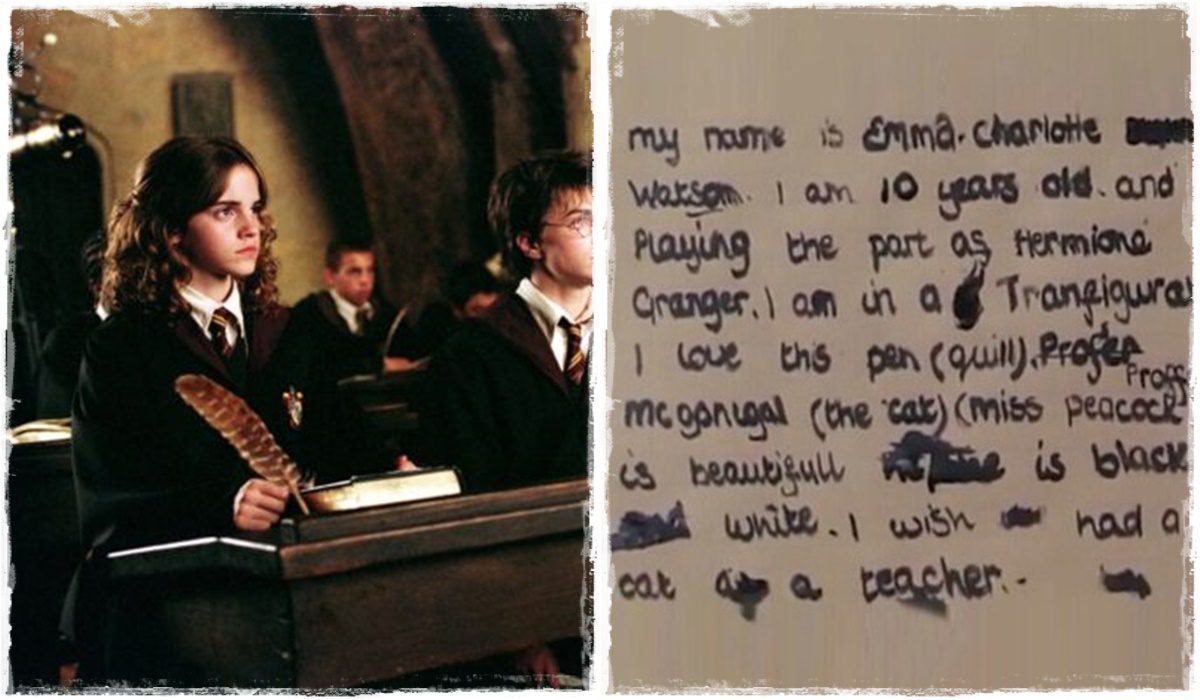 my name is Emma. Charlotte
Watson. I am 10 years old. and
Playing the part as Hermione
Granger. I am in a Tranfigurat
I love this pen (quill). Profer
Proff
mcgonigal (the cat) (miss peacock
is beautifull is black
and white. I wish had a
cat as a teacher.-